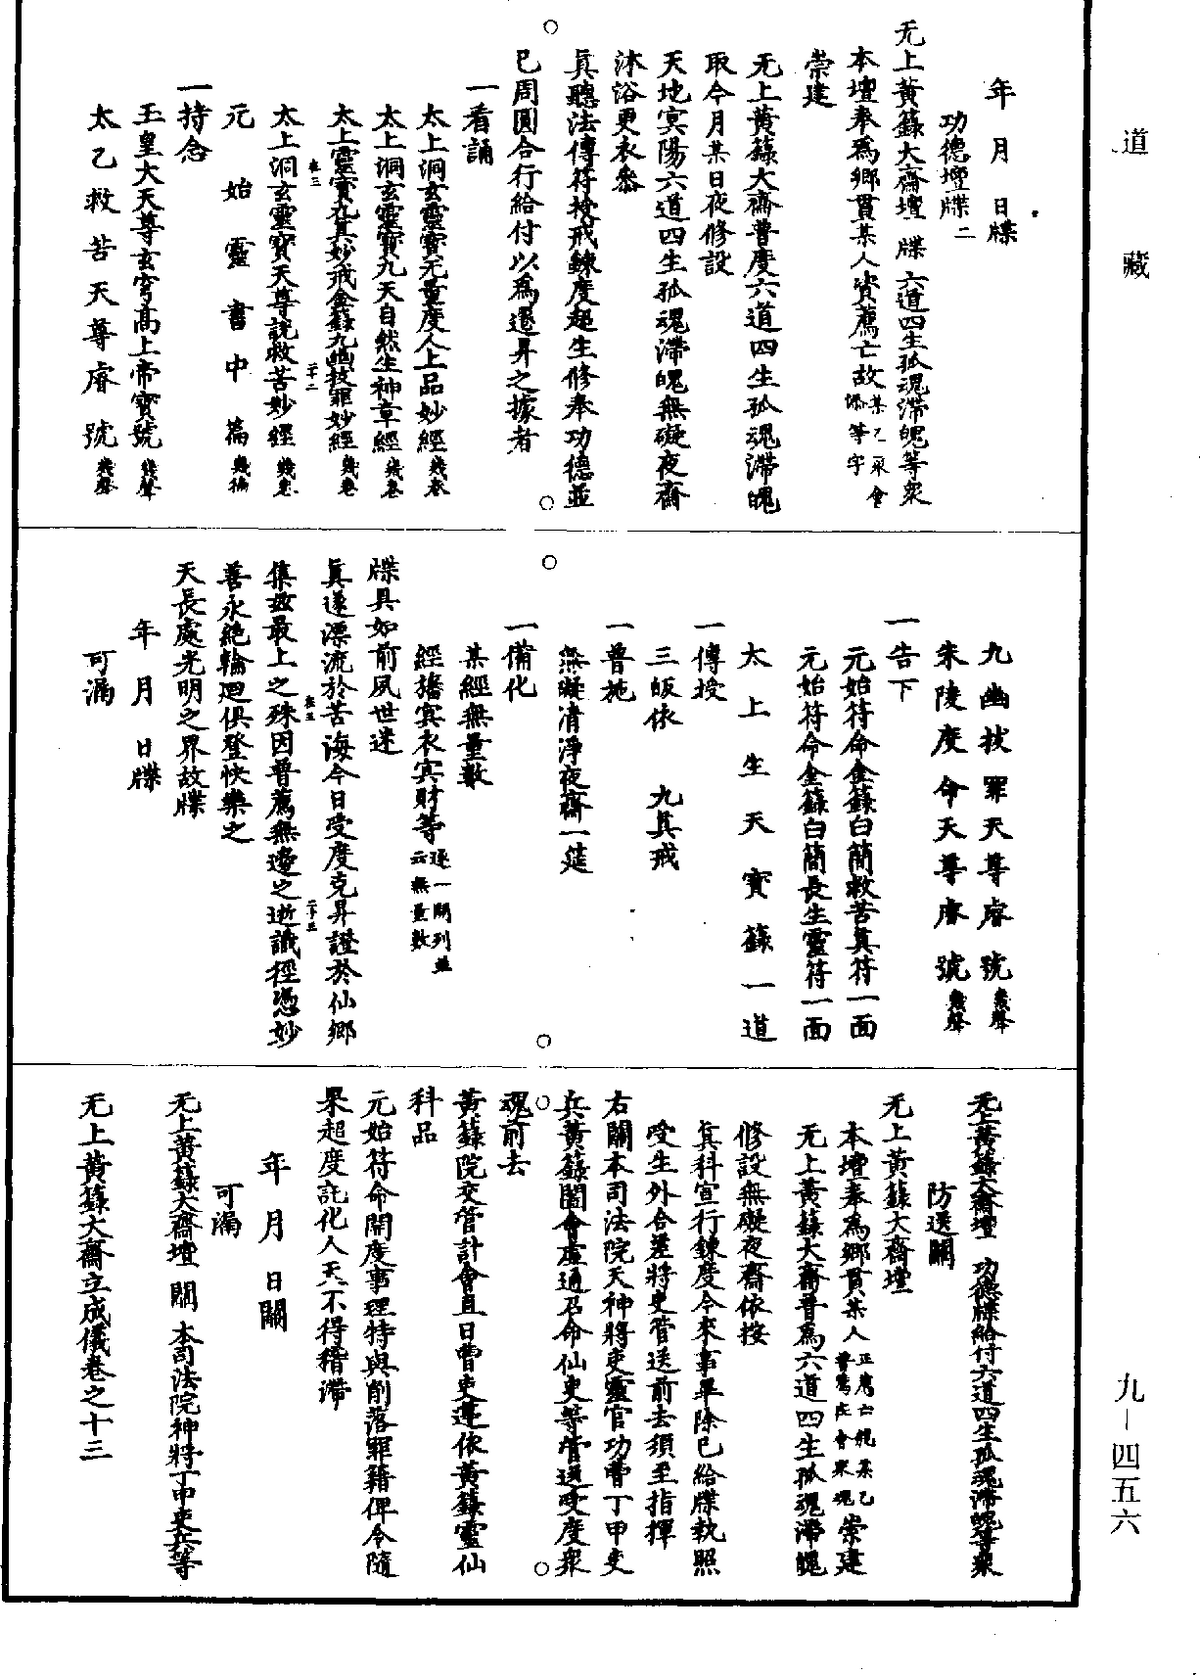 道藏
年 月 日牒
功德壇牒二
无上黃籙大齋壇 牒 六道四生孤魂滯魄等衆
本壇奉爲鄉貫某人資薦亡故某乙衆會係等字
崇建
无上黃籙大齋普度六道四生孤魂滯魄
取今月某日夜修設
天地冥陽六道四生孤魂滯魄無礙夜齋
沐浴更衣叅
眞聽法傳符授戒鍊度超生修奉功德並
已周圓合行給付以爲遷昇之據者
一看誦
太上洞玄靈寶无量度人上品妙經幾卷
太上洞玄靈寶九天自然生神章經幾卷
太上靈寶九眞妙戒金籙九幽拔罪妙經幾卷
太上洞玄靈寶天尊說救苦妙經幾卷
元始靈書中篇幾徧
一持念
玉皇大天尊玄穹高上帝寶號幾聲
太乙救苦天尊睿號幾聲
九幽拔罪天尊睿號幾聲
朱陵度命天尊睿號幾聲
一告下
元始符命金籙白簡救苦眞符一面
元始符命金籙白簡長生靈符一面
太上生天寶籙一道
一傳授
三皈依 九眞戒
一普施
無礙清淨夜齋一筵
一備化
某經無量數
經旛冥衣冥財等逐一開列並云無量數
牒具如前夙世迷
眞遂漂流於苦海今日受度克昇證於仙鄉
集兹最上之殊因普薦無邊之逝識徑憑妙
善永絕輪迴俱登快樂之
天長處光明之界故牒
年 月 日牒
可漏
无上黃籙大齋壇 功德牒給付六道四生孤魂滯魄等衆
防送關
无上黃籙大齋壇
本壇奉爲鄉貫某人正薦亡魂某乙普薦在會衆魂崇建
无上黃籙大齋普爲六道四生孤魂滯魄
修設無礙夜齋依按
眞科宣行鍊度今來事畢除已給牒執照
受生外合差將吏管送前去須至指揮
右關本司法院天神將吏靈官功曹丁甲吏
兵黃籙閤會虛通召命仙吏等管送受度衆
魂前去
黃籙院交管計會直日曹吏遵依黃籙靈仙
科品
元始符命開度事理特與削落罪籍俾令隨
果超度託化人天不得稽滯
年 月 日關
可漏
无上黃籙大齋壇 關 本司法院神將丁甲吏兵等
无上黃籙大齋立成儀卷之十三
九-四五六